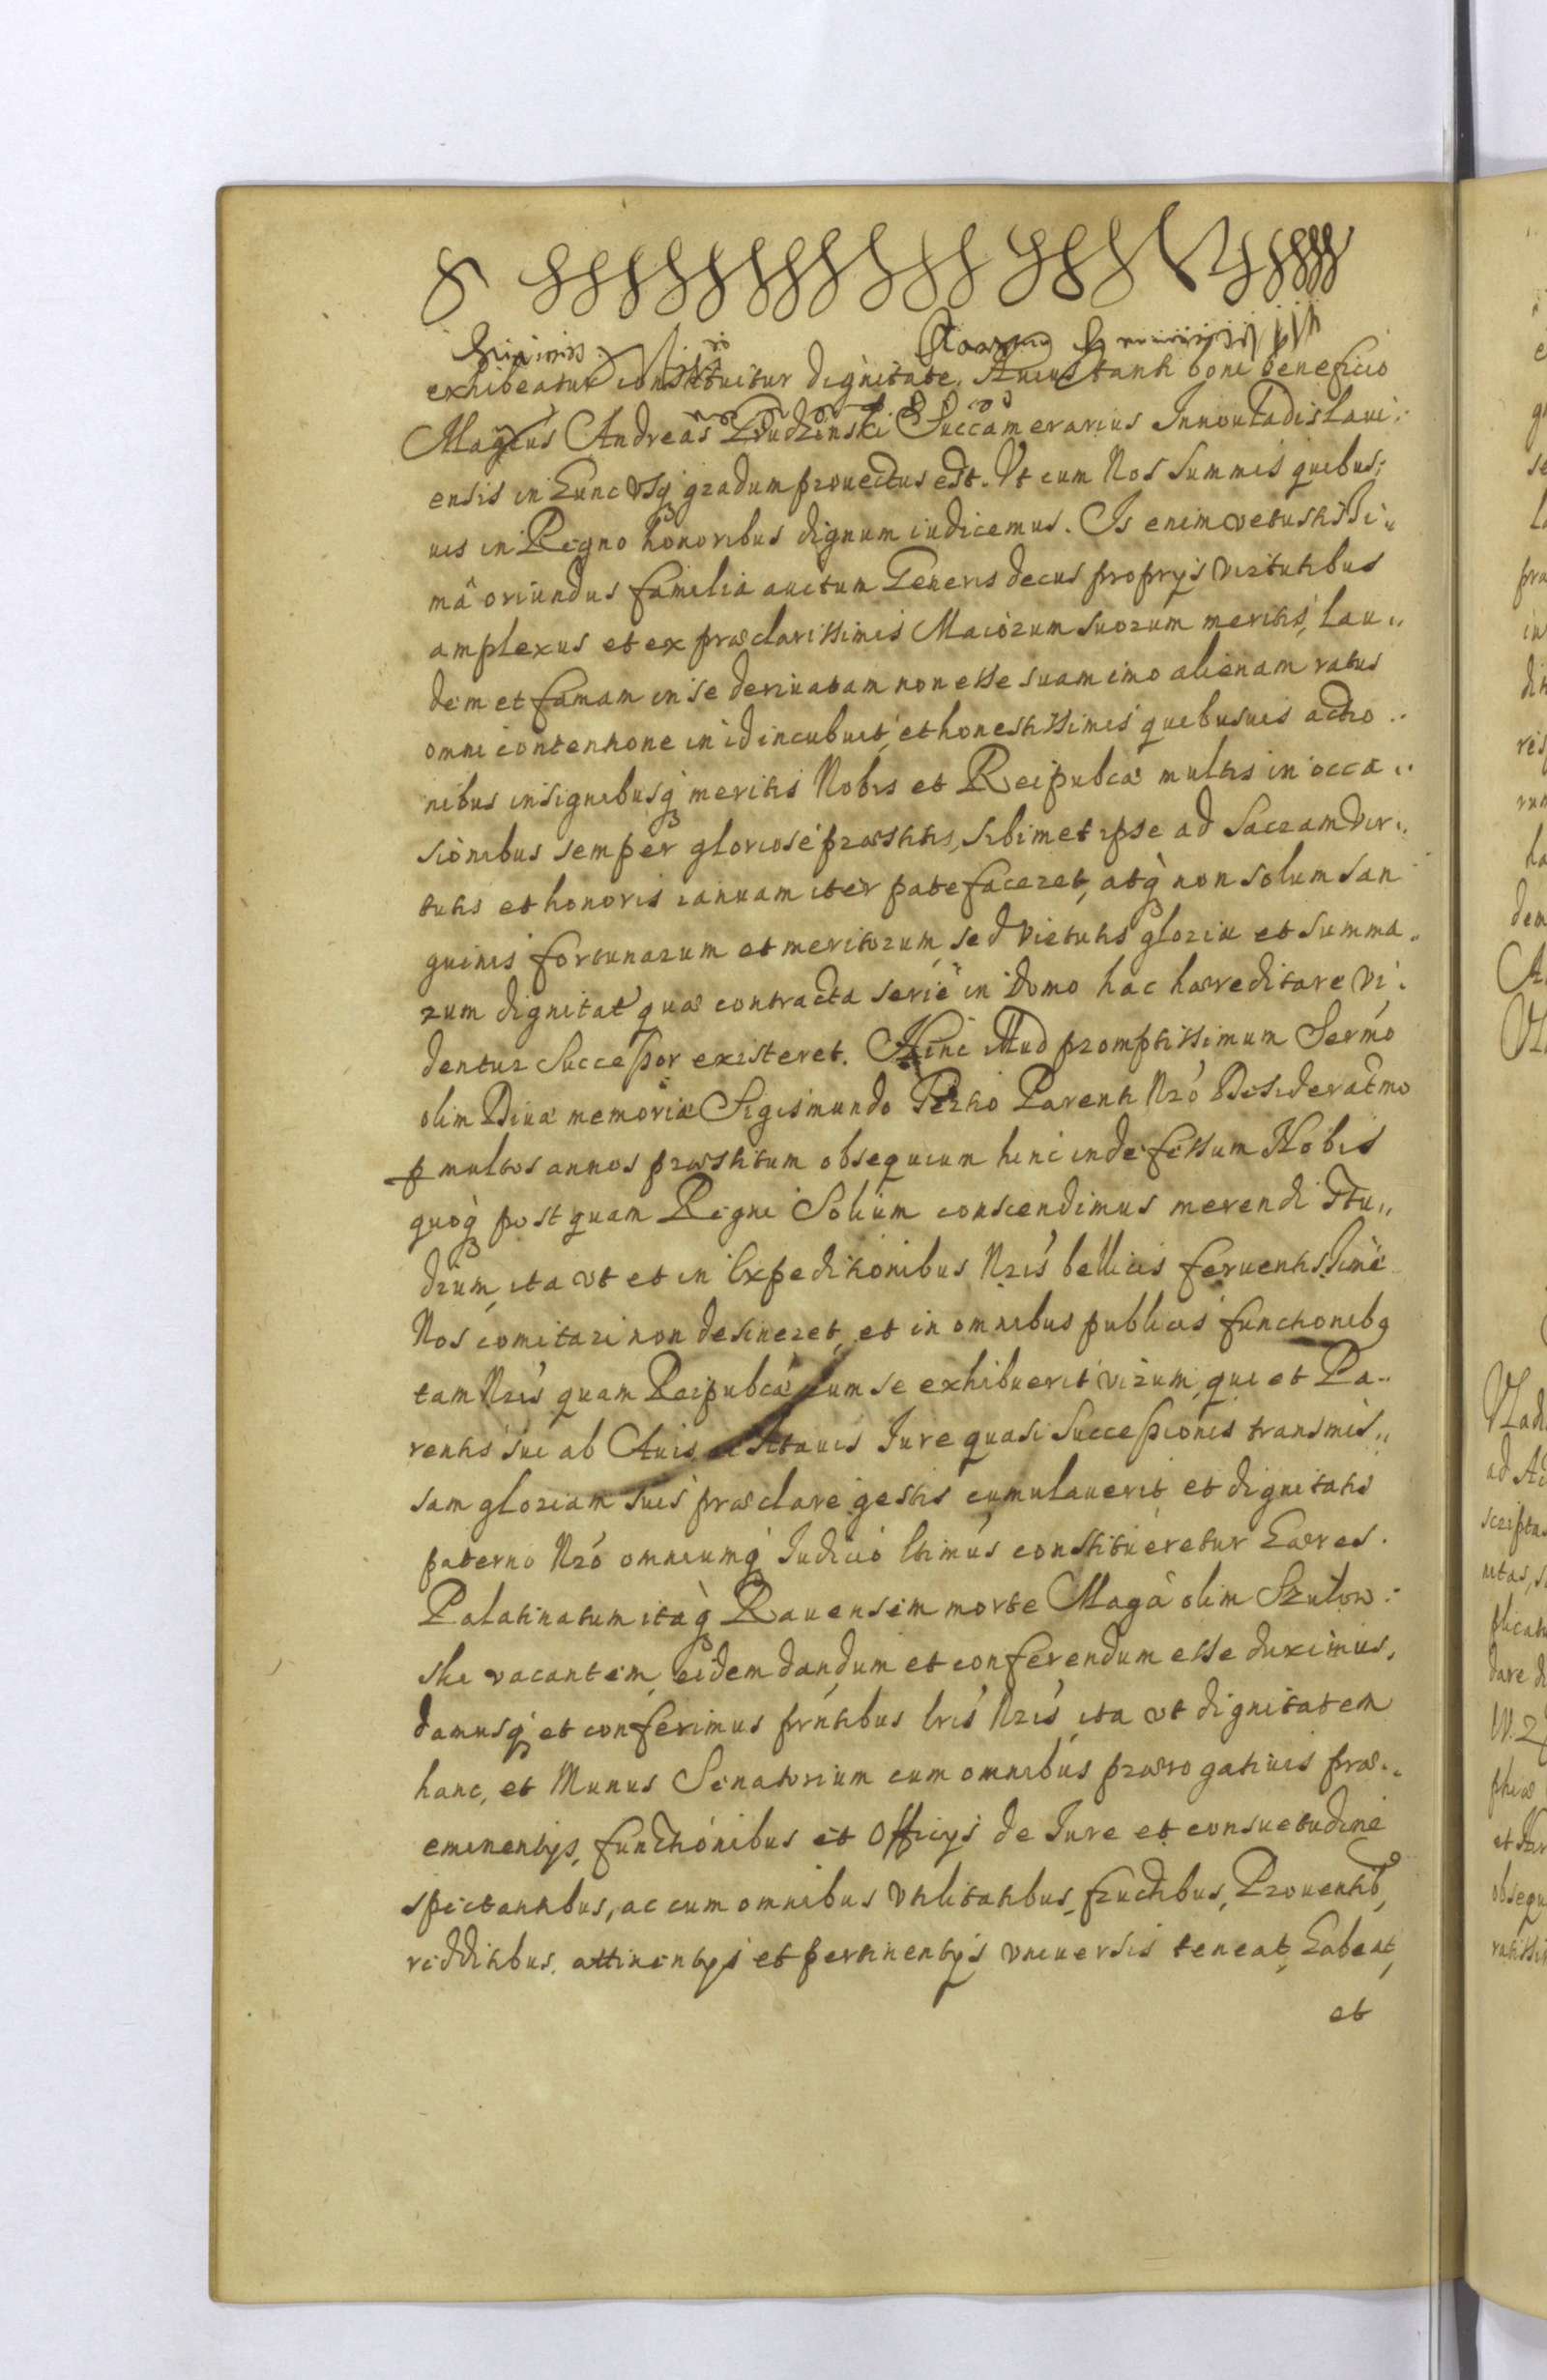 exhibeatur constituitur dignitate. Huius tanti boni beneficio
Magcus Andreas Grudzinski Succamerarius Innouladislaui:
ensis in hunc usq gradum prouectus est. Vt eum Nos summis quibus;
uis in Regno honoribus dignum iudicemus. Is enim vetustissi„
mâ oriundus familia auitum Generis decus proprys virtutibus
amplexus et ex præclarissimis Maiorum suorum meritis, lau„
dem et famam in se deriuatam non esse suam imo alienam ratus
omni contentione in id incubuit, et honestissimis quibusuis actio„
nibus insignibusq meritis Nobis et Reipubcæ multis in occa„
sionibus semper gloriose præstitis, sibimet ipse ad sacram vir„
tutis et honoris ianuam iter patefaceret, atq non solum san
guinis fortunarum et meritorum, sed virtutis gloriæ et summa„
rum dignitat quæ contracta serie in Domo hac hæreditare vi„
dentur Successor existeret. Hinc illud promptissimum Sermo
olim Diuæ memoriæ Sigismundo Tertio Parenti Nro Desideratmo
p multos annos præstitum obsequium hinc indefessum Nobis
quoq postquam Regni Solium conscendimus merendi stu„
dium, ita vt et in Expeditionibus Nris bellicis feruentissime
Nos comitari non desineret, et in omnibus publicis functionibq
tam Nris quam Reipubcæ eum se exhibuerit virum, qui et Pa„
rentis sui ab Auis et Atauis Iure quasi Successionis transmis„
sam gloriam suis præclare gestis cumulauerit et dignitatis
paterno Nro omniumq Iudicio ltimus constitueretur hæres.
Palatinatum itaq Rauensem morte Magci olim Szulow:
ski vacantem, eidem dandum et conferendum esse duximus,
damusq et conferimus prntibus lris Nris, ita vt dignitatem
hanc, et Munus Senatorium cum omnibus prærogatiuis præ„
eminentys, functionibus et Officys de Iure et consuetudine
spectantibus, ac cum omnibus vtilitatibus, fructibus, Prouentib,
redditibus, attinentys et pertinentys vniuersis teneat, habeat,
et